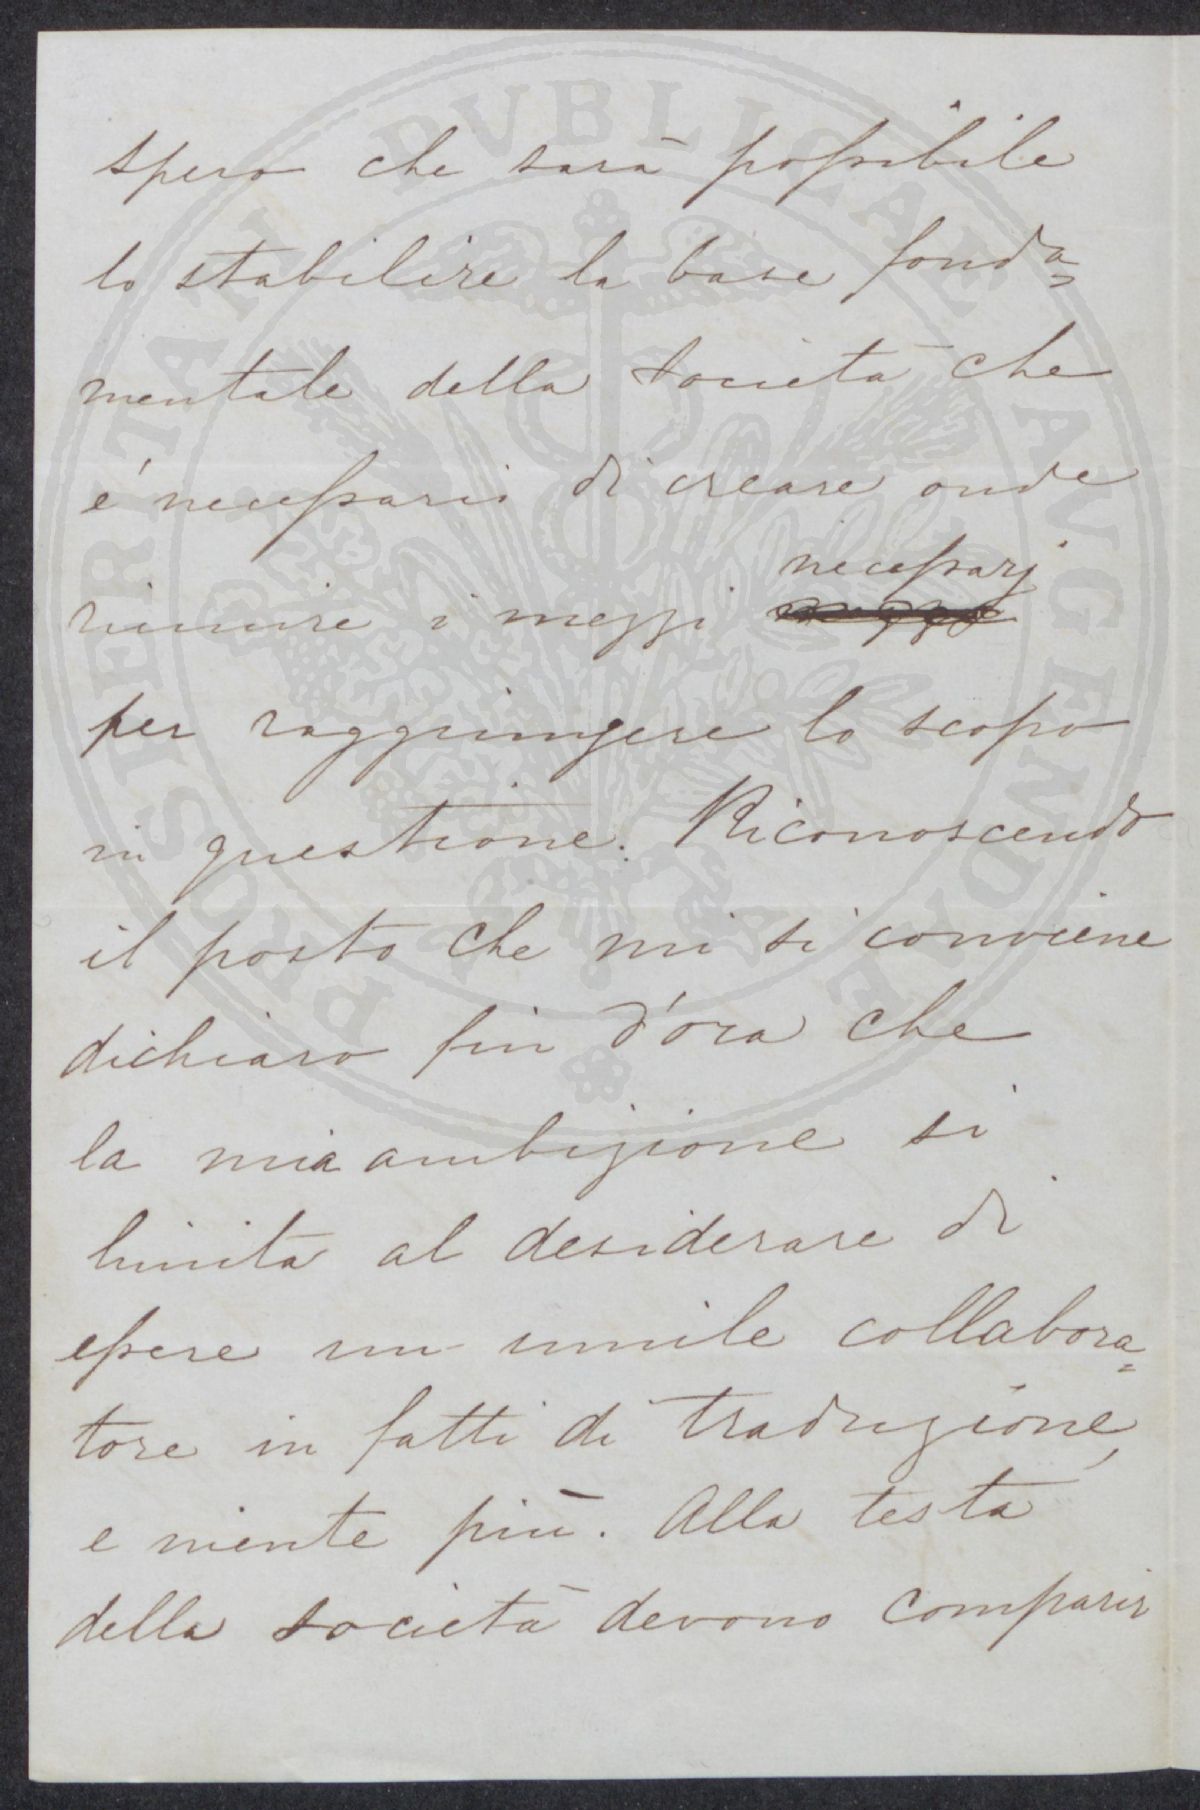 spero che sarà possibile
lo stabilire la base fonda=
mentale della società che
é necessario di creare onde
riunire i mezzi necessarj
per raggiungere lo scopo
in questione. Riconoscendo
il posto che mi si conviene
dichiaro fin d'ora che
la mia ambizione si
limita al desiderare di
essere un umile collabora=
tore in fatti di traduzione,
e niente più. Alla testa
della società devono comparir
PROSPERITATI PVBLICAE AVGENDAE